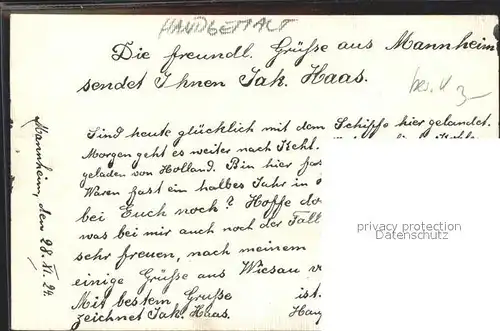 HANDGEMALT
Die freundl. Grüsse aus Mannheim
sendet Ihnen Jak. Haas.
Mannheim, den 28. XI. 24
Sind heute glücklich mit dem Schiffe hier gelandet.
Morgen geht es weiter nach Kehl.
geladen von Holland. Bin hier
Waren fast ein halbes Jahr in
bei Euch noch? Hoffe
was bei mir auch noch der Fall
sehr freuen, nach meinem
einige Grüsse aus Wiesau
Mit bestem Grusse ist.
zeichnet Jak. Haas.
privacy protection
Datenschutz